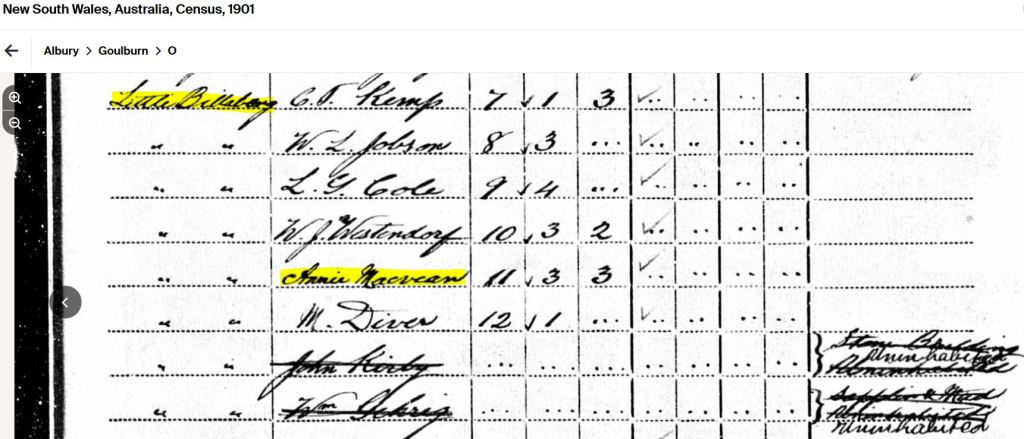 New South Wales, Australia, Census, 1901
Albury > Goulburn > O
Little Billabong C. T. Kemp 7 1 3
" " W. L. Jobson 8 3 ...
" " L. G. Cole 9 4 ...
" " W. J. Westendorf 10 3 2
" " Annie Macvean 11 3 3
" " M. Diver 12 1 ...
" " John Kirby
Uninhabited
" " Wm
Mud
Uninhabited